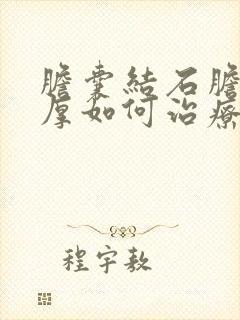 膽囊結石膽
厚如何治療
程宇敖